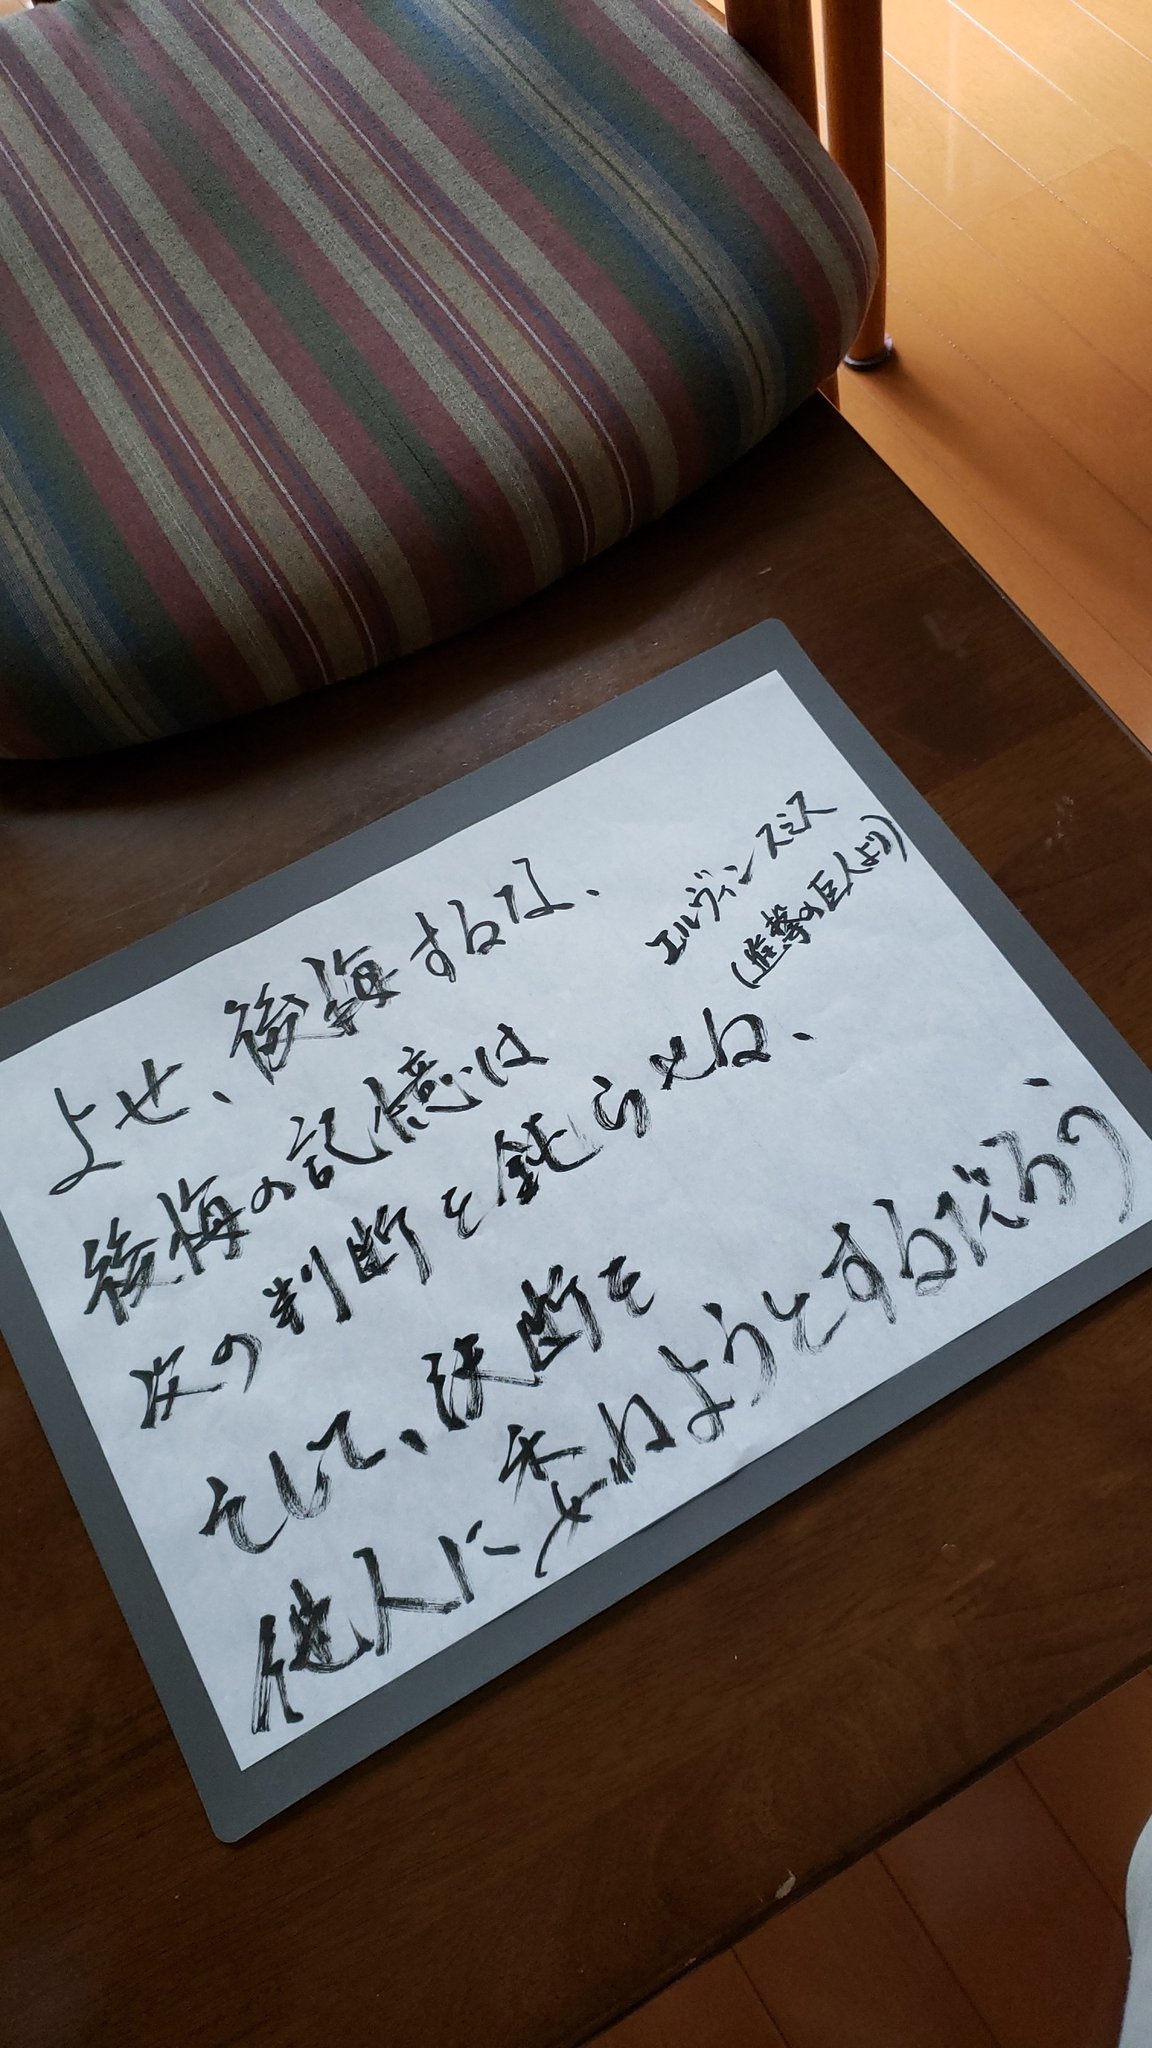 よせ、後悔するな、
後悔の記憶は
次の判断を鈍らせる、
そして、決断を
他人に委ねようとするだろう
エルヴィンスミス
(進撃の巨人より)